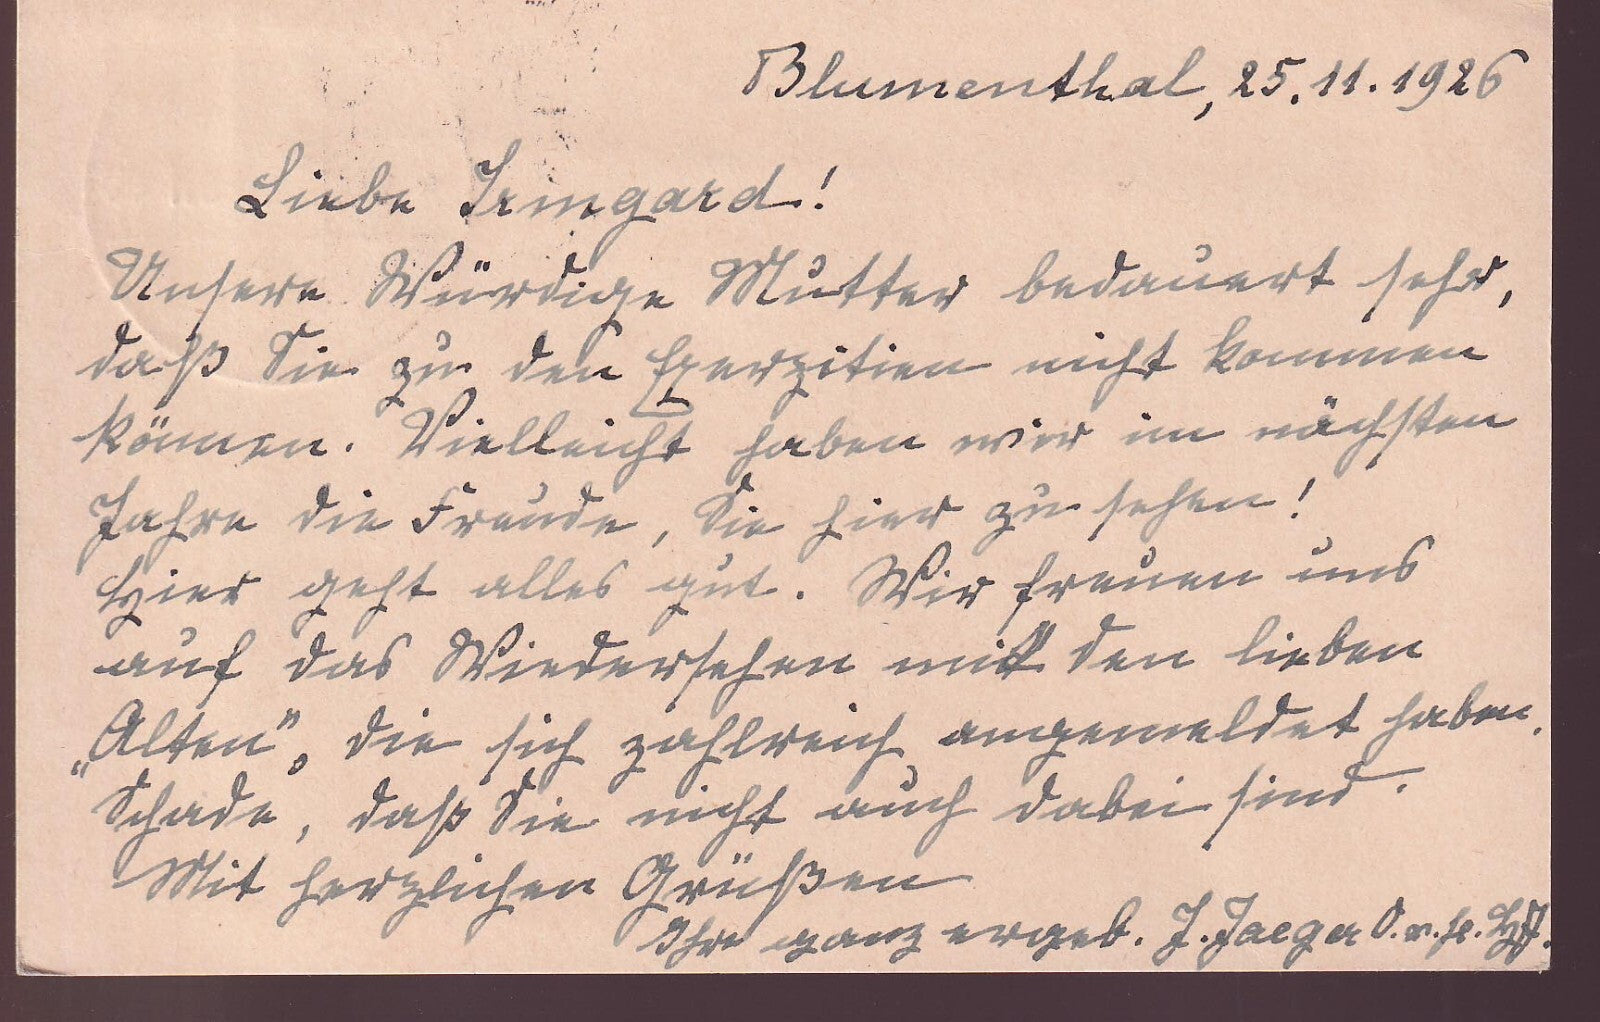 Blumenthal, 25.11.1926
Liebe Irmgard!
Unsere Würdige Mutter bedauert sehr,
daß Sie zu den Exerzitien nicht kommen
können. Vielleicht haben wir im nächsten
Jahre die Freude, Sie hier zu sehen!
Hier geht alles gut. Wir freuen uns
auf das Wiedersehen mit den lieben
„Alten", die sich zahlreich angemeldet haben.
Schade, daß Sie nicht auch dabei sind.
Mit herzlichen Grüßen
Ihre ganz ergeb. J. Jaeger O. v. hl.